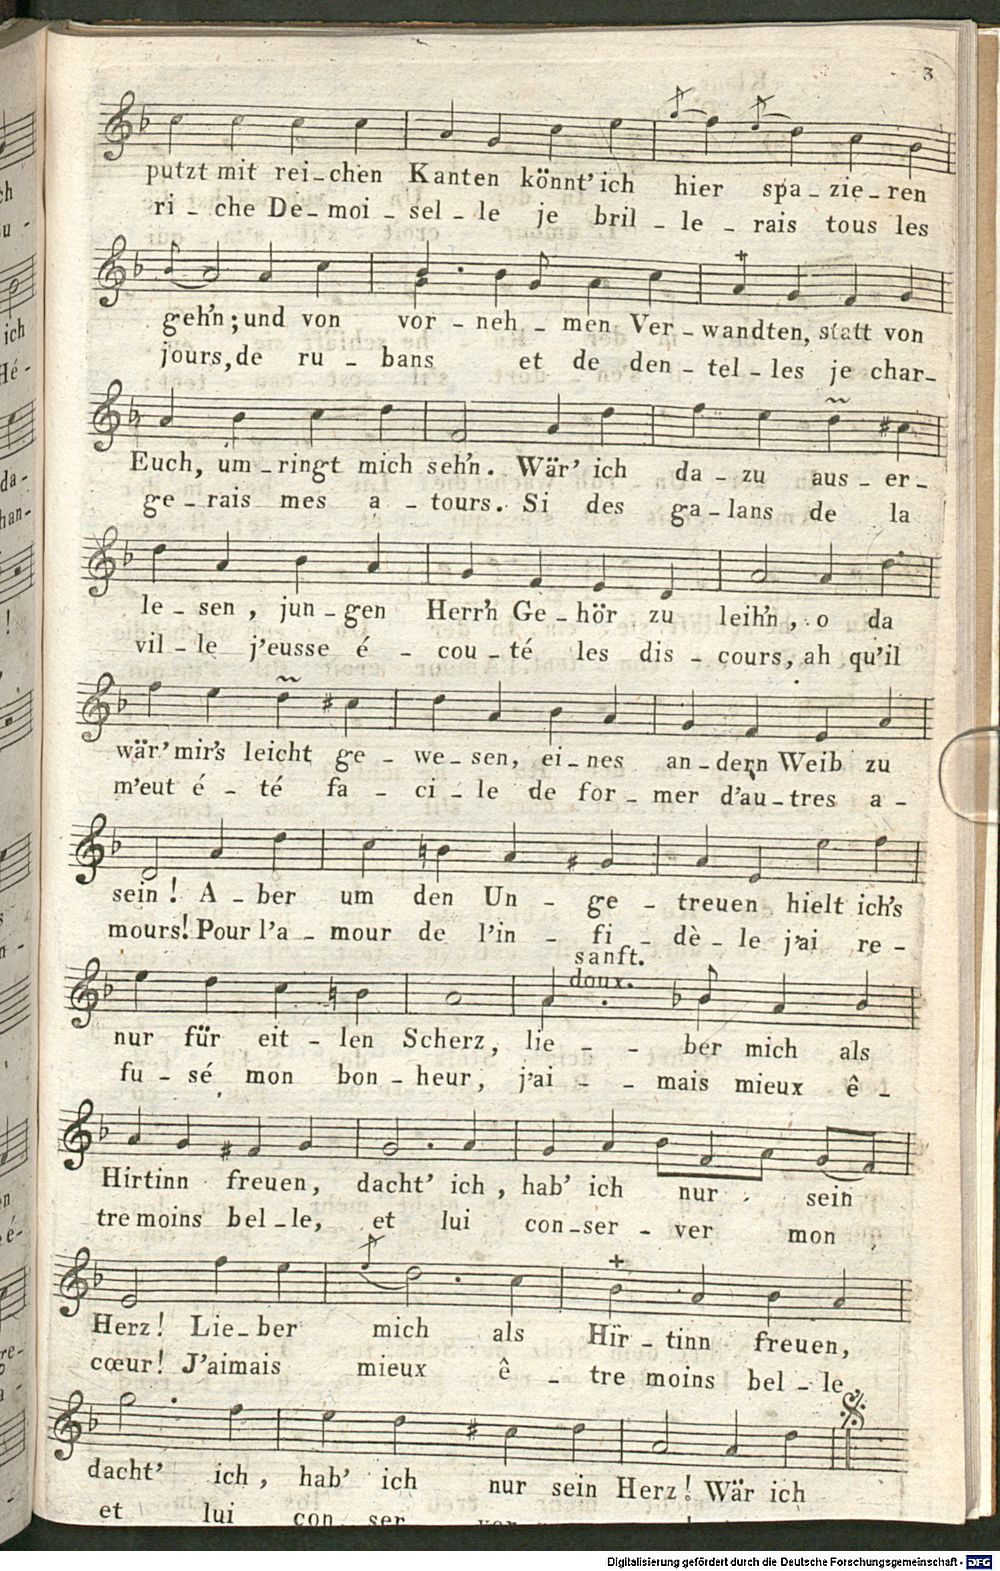 3
putzt mit rei-chen Kanten könnt' ich hier spa-zie-ren
ri-che De-moi-sel-le je bril-le-rais tous les
geh'n; und von vor-neh-men Ver-wandten, statt von
jours, de ru-bans et de den-tel-les je char-
Euch, um-ringt mich seh'n. Wär' ich da-zu aus-er-
ge-rais mes a-tours. Si des ga-lans de la
le-sen, jun-gen Herr'n Ge-hör zu leih'n, o da
vil-le j'eusse é-cou-té les dis-cours, ah qu'il
wär' mir's leicht ge-we-sen, ei-nes an-dern Weib zu
m'eut é-té fa-ci-le de for-mer d'au-tres a-
sein! A-ber um den Un-ge-treuen hielt ich's
mours! Pour l'a-mour de l'in-fi-dè-le j'ai re-
sanft.
doux.
nur für eit-len Scherz, lie--ber mich als
fu-sé mon bon-heur, j'ai--mais mieux ê-
Hirtinn freuen, dacht' ich, hab' ich nur sein
tre moins bel-le, et lui con-ser-ver mon
Herz! Lie-ber mich als Hir-tinn freuen,
cœur! J'aimais mieux ê-tre moins bel-le
dacht' ich, hab' ich nur sein Herz! Wär ich
et lui con ser
Digitalisierung gefördert durch die Deutsche Forschungsgemeinschaft - DFG